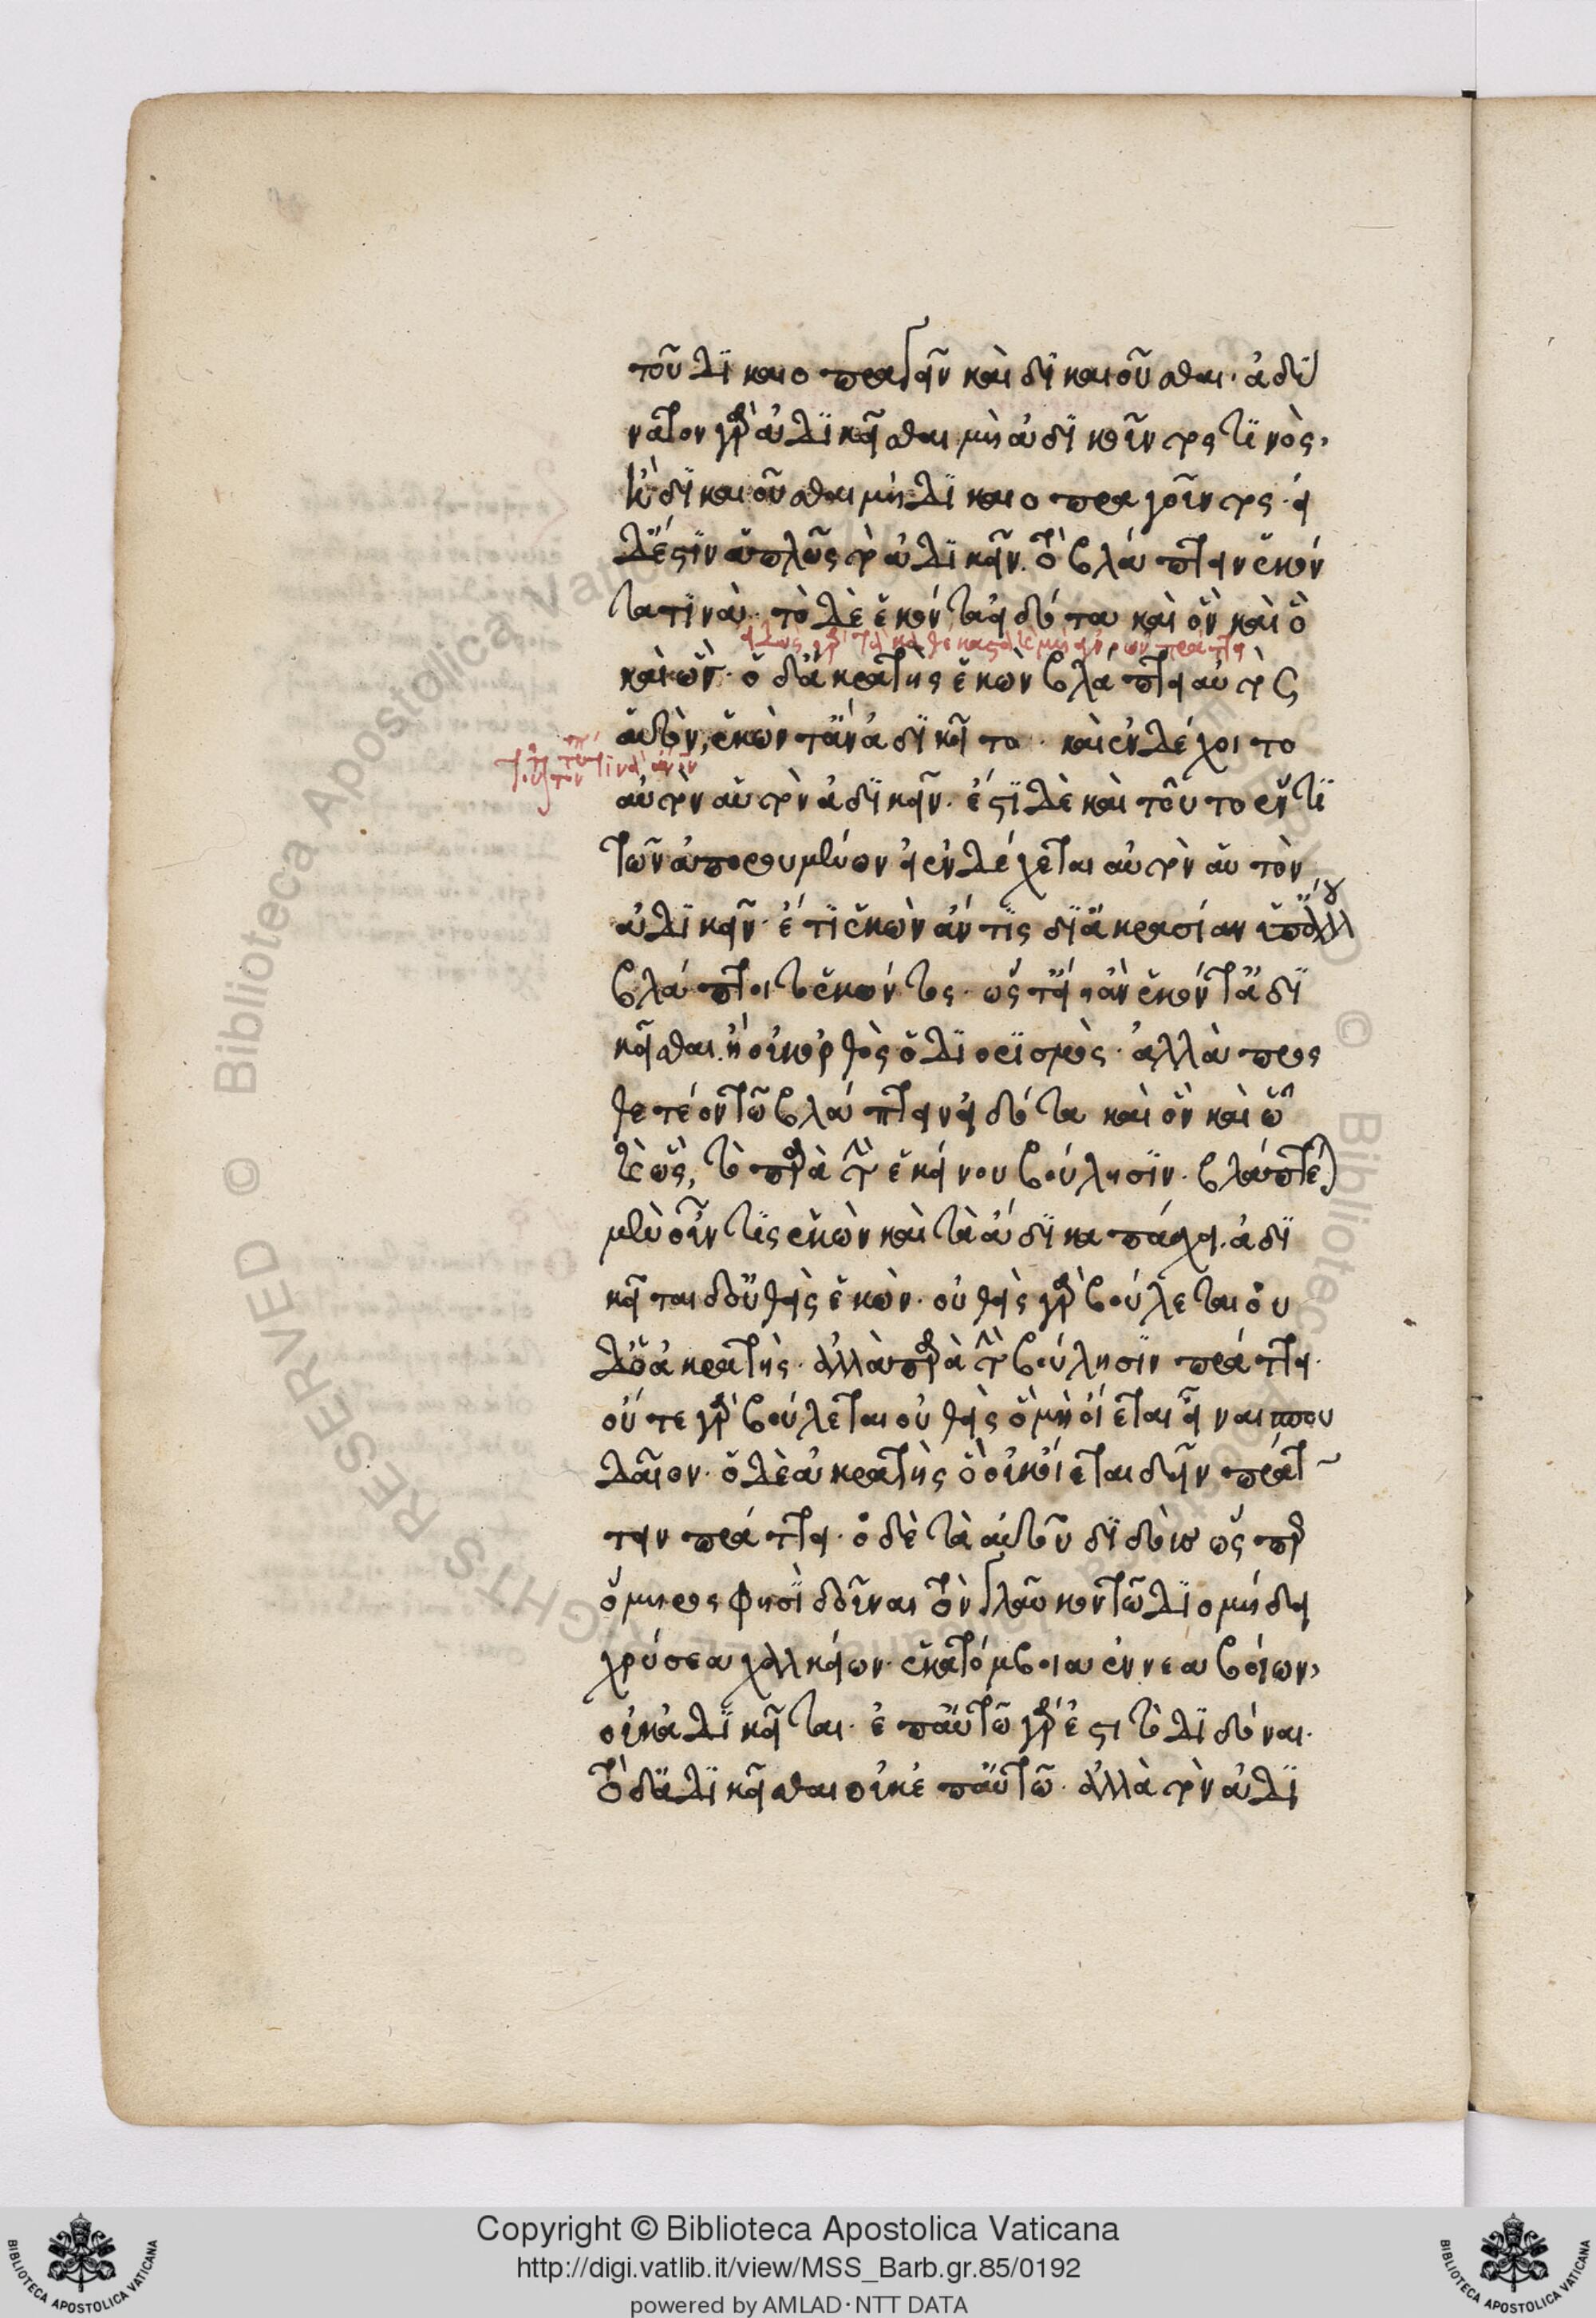 τοῦ δικαιοπραγεῖν καὶ δικαιοῦσθαι· ἀδύ
νατον γὰρ ἀδικεῖσθαι μὴ ἀδικοῦντος τινός,
ἢ δικαιοῦσθαι μὴ δικαιοπραγοῦντος· εἰ
δέ ἐστιν ἁπλῶς τὸ ἀδικεῖν. τὸ βλάπτειν ἑκόν
τα τινά· τὸ δὲ ἑκόντα εἰδότα καὶ ὃν καὶ ὃ
καὶ ὥς· ὁ δ' ἀκρατὴς ἑκὼν βλάπτει αὐτὸς
αὑτόν, ἑκών τ' ἂν ἀδικοῖτο· καὶ ἐνδέχοιτο
αὐτὸν αὑτὸν ἀδικεῖν· ἔστι δὲ καὶ τοῦτο ἕν τι
τῶν ἀπορουμένων εἰ ἐνδέχεται αὐτὸν αὑτὸν
ἀδικεῖν· ἔτι ἑκὼν ἄν τις δι' ἀκρασίαν ὑπ' ἄλλου
βλάπτοιτο ἑκόντος· ὥστ' εἴη ἂν ἑκόντ' ἀδι
κεῖσθαι· ἢ οὐκ ὀρθὸς ὁ διορισμός· ἀλλὰ προσ
θετέον τῷ βλάπτειν εἰδότα καὶ ὃν καὶ ᾧ
καὶ ὥς, τὸ παρὰ τὴν ἐκείνου βούλησιν· βλάπτεται
μὲν οὖν τις ἑκὼν καὶ τὰ ἄδικα πάσχει· ἀδι
κεῖται δ' οὐθεὶς ἑκών· οὐθεὶς γὰρ βούλεται οὐ
δ' ὁ ἀκρατής· ἀλλὰ παρὰ τὴν βούλησιν πράττει·
οὔτε γὰρ βούλεται οὐθεὶς ὃ μὴ οἴεται εἶναι σπου
δαῖον· ὁ δὲ ἀκρατὴς ὃ οὐκ οἴεται δεῖν πράτ
τειν πράττει· ὁ δὲ τὰ αὑτοῦ διδοὺς ὥσπερ
ὅμηρος φησὶ δοῦναι τὸν γλαῦκον τῷ διομήδει
χρύσεα χαλκείων· ἑκατόμβοια ἐννεαβοίων,
οὐκ ἀδικεῖται· ἐπ' αὐτῷ γάρ ἐστι τὸ διδόναι·
τὸ δ' ἀδικεῖσθαι οὐκ ἐπ' αὐτῷ· ἀλλὰ τὸν ἀδι
Copyright © Biblioteca Apostolica Vaticana
http://digi.vatlib.it/view/MSS_Barb.gr.85/0192
powered by AMLAD · NTT DATA
BIBLIOTECA APOSTOLICA VATICANA
BIBLIOTECA APOSTOLICA VATICANA